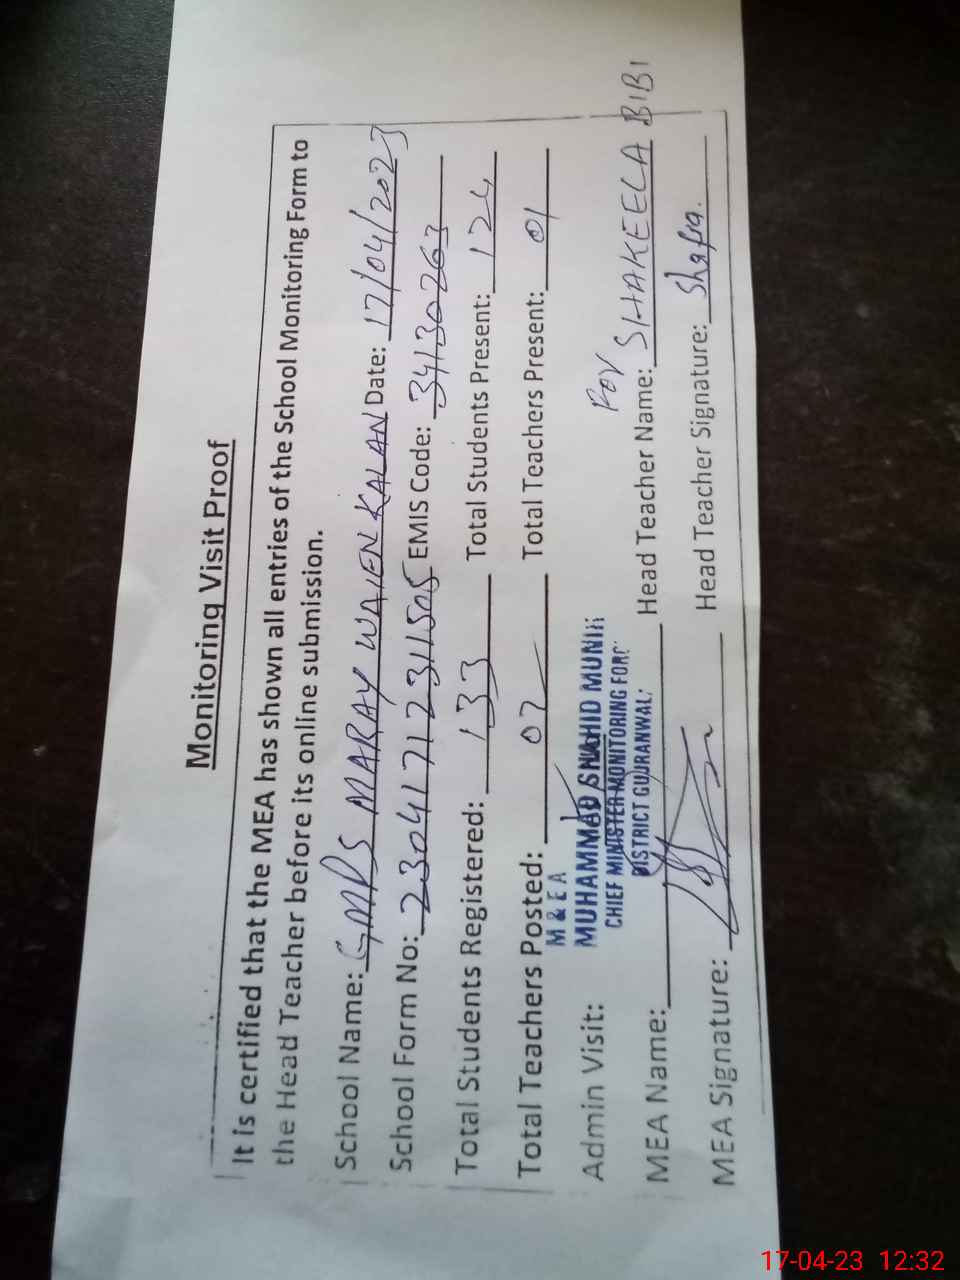 Monitoring Visit Proof
It is certified that the MEA has shown all entries of the School Monitoring Form to
the Head Teacher before its online submission.
School Name: GMPS MARAY WALEN KALAN Date: 17/04/2023
School Form No: 23041712311505 EMIS Code: 34130263
Total Students Registered: 133 Total Students Present: 124
Total Teachers Posted: 02 Total Teachers Present: 01
M & E A
Admin Visit: MUHAMMAD SHAHID MUNIR
CHIEF MINISTER MONITORING FORC
DISTRICT GUJRANWALA
For
MEA Name: Head Teacher Name: SHAKEELA BIBI
MEA Signature: Head Teacher Signature: Shafia.
17-04-23 12:32